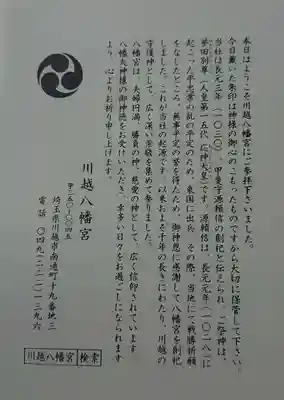 本日はようこそ川越八幡宮にご参拝下さいました。
今日戴いた朱印は神様の御心のこもったものですから大切に保管して下さい。
当社は長元三年（一〇三〇）、甲斐守源頼信の創祀と伝えられ、ご祭神は、
誉田別尊（人皇第一五代 応神天皇）です。源頼信は、長元元年（一〇二八）に
起こった平忠常の乱の平定のため、東国に出兵 その際、当地にて戦勝祈願
をなしたところ、無事平定の誉を得たため、御神恩に感謝して八幡宮を創祀
しました。これが当社の起源です。以来およそ千年の長きにわたり、川越の
守護神として、広く深い崇敬を集めて参りました。
八幡宮は、夫婦円満、勝負の神、慈愛の神として、広く信仰されています
八幡大神様の御神徳をお受けいただき、幸多い日々をお過ごしになられます
よう、心よりお祈り申し上げます。
川越八幡宮
〒三五〇-〇〇四五
埼玉県川越市南通町十九番地三
電話 〇四九(二二二)一三九六
川越八幡宮 検索